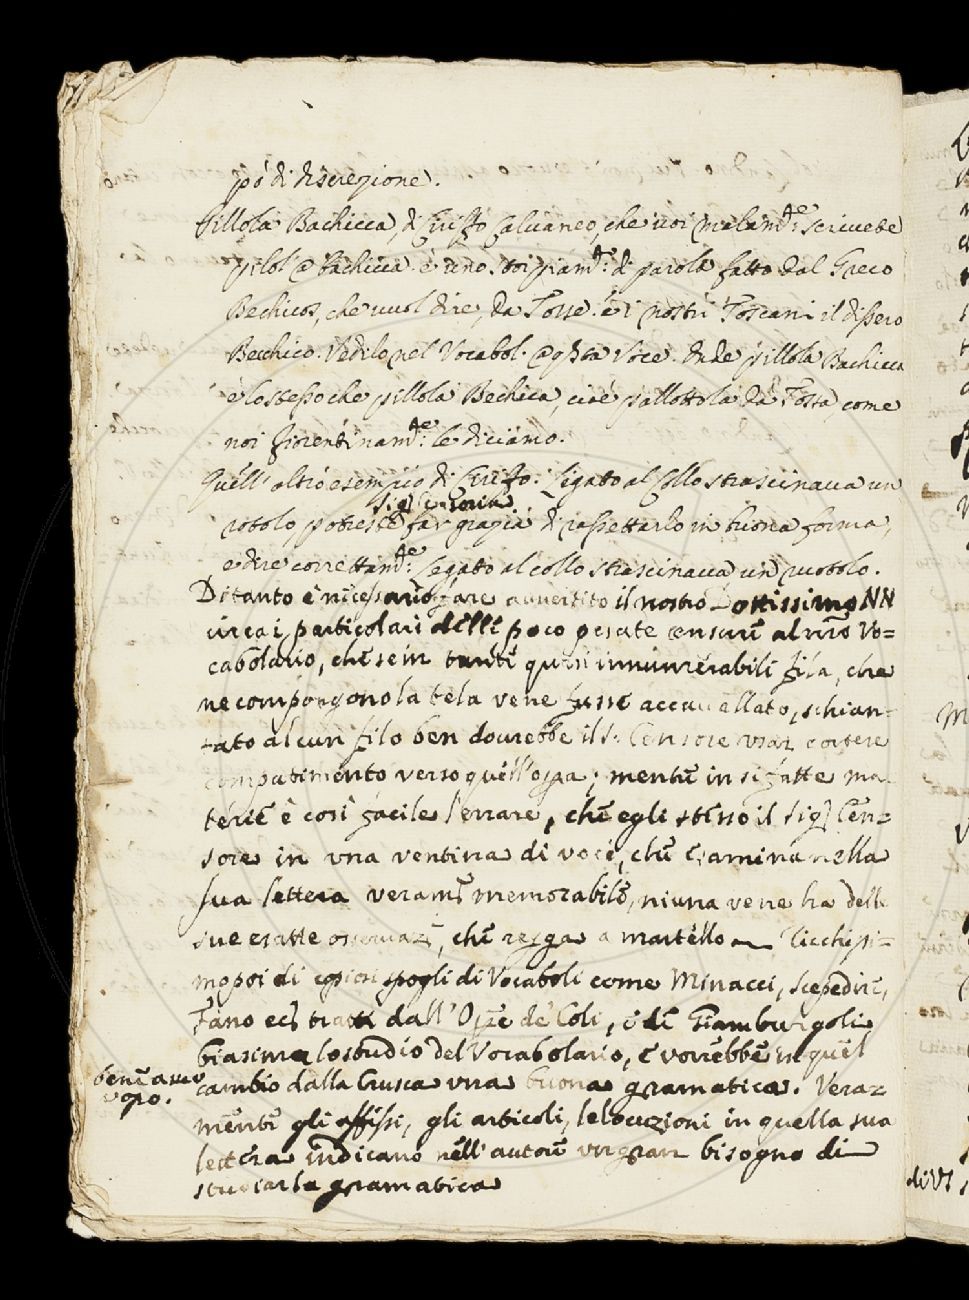 pó di discrezione.
Pillola Bachicca, di Crisito Calvaneo, che voi malam.te scrivete
pilol@ Bachicca. è uno storpiam.to di parola fatto dal Greco
Bechicos, che vuol dire, da Tosse. e i nostri Toscani il dissero
Becchico. Vedilo nel Vocabol. @ qsta voce. Onde pillola Bachicca
è lo stesso che pillola Bechica, cioè pallottola da Tossa, come
noi fiorentinam.te le diciamo.
Quell' altro esempio di : Ligato al Collo strascinava un
Sig.
rotolo, potreste far grazia di rassettarlo in buona forma,
e dire correttam.te: Legato al collo strascinava un ruotolo.
Di tanto è nicessario fare avvertito il nostro Dottissimo NN
circa i particolari delle poco pesate censure al nrõ Vo=
cabolario, che se in tante quasi innumerabili fila, che
ne compongono la tela vene fusse accavallato, schian=
tato alcun filo ben dovrebbe il S. Censore usar cortese
compatimento verso quell'opa; mentre in sì fatte ma
terie è così facile l'errare, che egli stesso il Sig. Cen=
sore in una ventina di voci, che esamina nella
sua lettera veram.e memorabile, niuna vene ha delle
sue esatte osservaz.i, che regga a martello Ricchissi=
mo poi di copiosi spogli di Vocaboli come Minacci, Scepedire,
Fano ec tratti dall' Ope de Coli, e de Giamburgoli
biasima lo studio del Vocabolario, e vorrebbe in quel
bene a suo uopo.
cambio dalla Crusca una buona gramatica. Vera=
mente gli affissi, gli articoli, le locuzioni in quella sua
lettera indicano nell' autore un gran bisogno di
studiar la gramatica
di VI